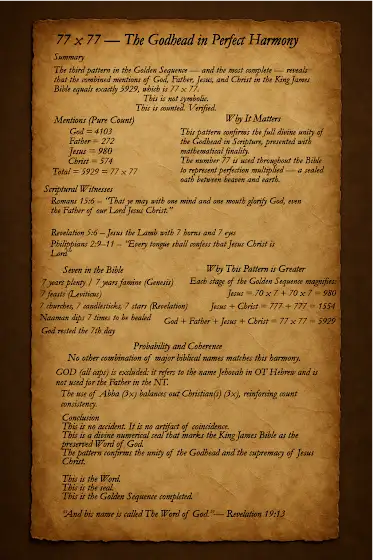 77 x 77 — The Godhead in Perfect Harmony
Summary
The third pattern in the Golden Sequence — and the most complete — reveals
that the combined mentions of God, Father, Jesus, and Christ in the King James
Bible equals exactly 5929, which is 77 x 77.
This is not symbolic.
This is counted. Verified.
Mentions (Pure Count)
God = 4103
Father = 272
Jesus = 980
Christ = 574
Total = 5929 = 77 x 77
Why It Matters
This pattern confirms the full divine unity of
the Godhead in Scripture, presented with
mathematical finality.
The number 77 is used throughout the Bible
to represent perfection multiplied — a sealed
oath between heaven and earth.
Scriptural Witnesses
Romans 15:6 – "That ye may with one mind and one mouth glorify God, even
the Father of our Lord Jesus Christ."
Revelation 5:6 – Jesus the Lamb with 7 horns and 7 eyes
Philippians 2:9–11 – "Every tongue shall confess that Jesus Christ is
Lord"
Seven in the Bible
7 years plenty / 7 years famine (Genesis)
7 feasts (Leviticus)
7 churches, 7 candlesticks, 7 stars (Revelation)
Naaman dips 7 times to be healed
God rested the 7th day
Why This Pattern is Greater
Each stage of the Golden Sequence magnifies:
Jesus = 70 x 7 + 70 x 7 = 980
Jesus + Christ = 777 + 777 = 1554
God + Father + Jesus + Christ = 77 x 77 = 5929
Probability and Coherence
No other combination of major biblical names matches this harmony.
GOD (all caps) is excluded: it refers to the name Jehovah in OT Hebrew and is
not used for the Father in the NT.
The use of Abba (3x) balances out Christian(s) (3x), reinforcing count
consistency.
Conclusion
This is no accident. It is no artifact of coincidence.
This is a divine numerical seal that marks the King James Bible as the
preserved Word of God.
The pattern confirms the unity of the Godhead and the supremacy of Jesus
Christ.
This is the Word.
This is the seal.
This is the Golden Sequence completed.
"And his name is called The Word of God."— Revelation 19:13